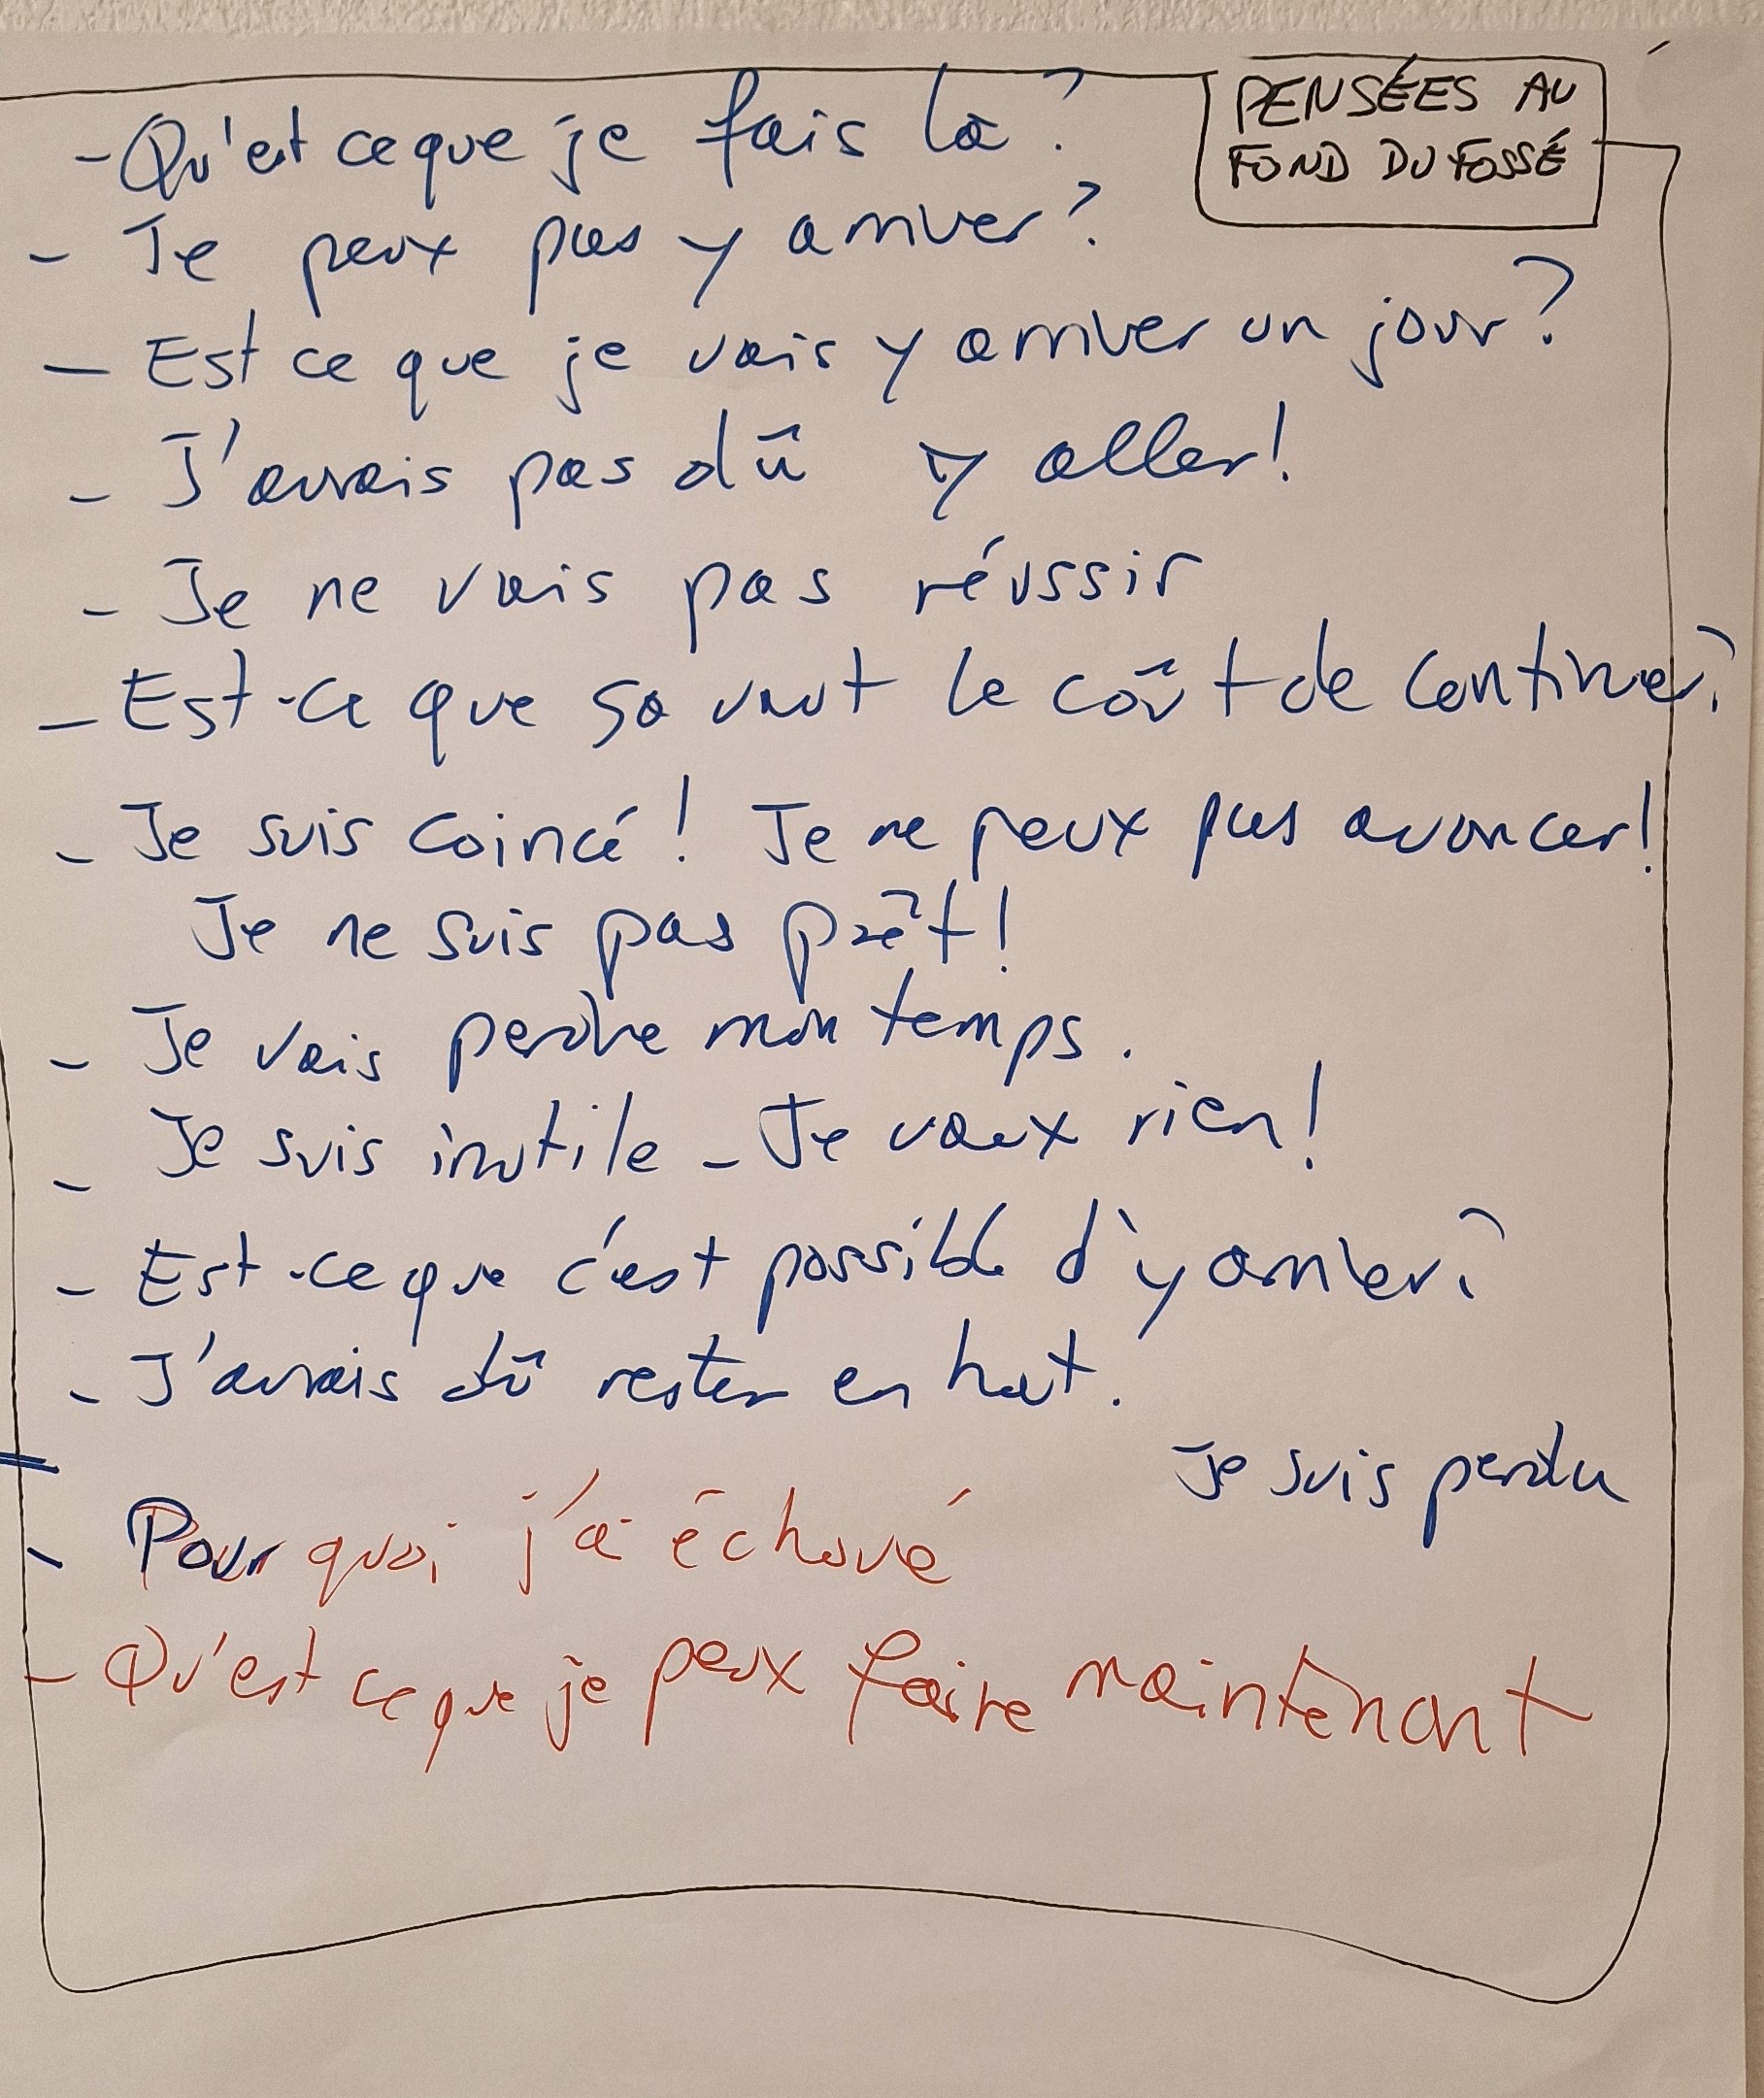 PENSÉES AU
FOND DU FOSSÉ
- Qu'est ce que je fais là ?
- Je peux pas y arriver ?
- Est ce que je vais y arriver un jour ?
- J'aurais pas dû y aller !
- Je ne vais pas réussir
- Est-ce que sa vaut le coût de continuer ?
- Je suis coincé ! Je ne peux pas avancer !
Je ne suis pas prêt !
- Je vais perdre mon temps.
- Je suis inutile - Je vaux rien !
- Est-ce que c'est possible d'y arriver ?
- J'aurais dû rester en haut.
Je suis perdu
- Pourquoi j'ai échoué
- Qu'est ce que je peux faire maintenant